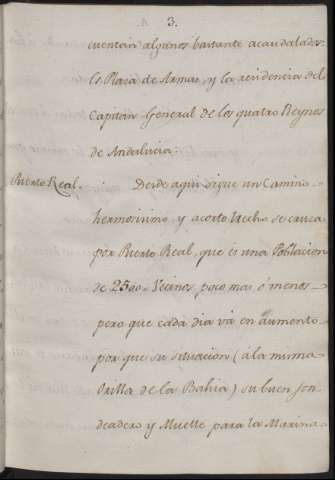 3.
cuentan algunos bastante acaudalados.
Es Plaza de Armas, y la residencia del
Capitan General de los quatro Reynos
de Andalucia.
Puerto Real. Desde aqui sigue un Camino
hermosisimo y acorto trecho se cruza
por Puerto Real, que es una Poblacion
de 2500. Vecinos poco mas, ó menos
pero que cada dia vá en aumento
por que su situacion (á la misma
Orilla de la Bahia) su buen fon-
deadero y Muelle para la Marina